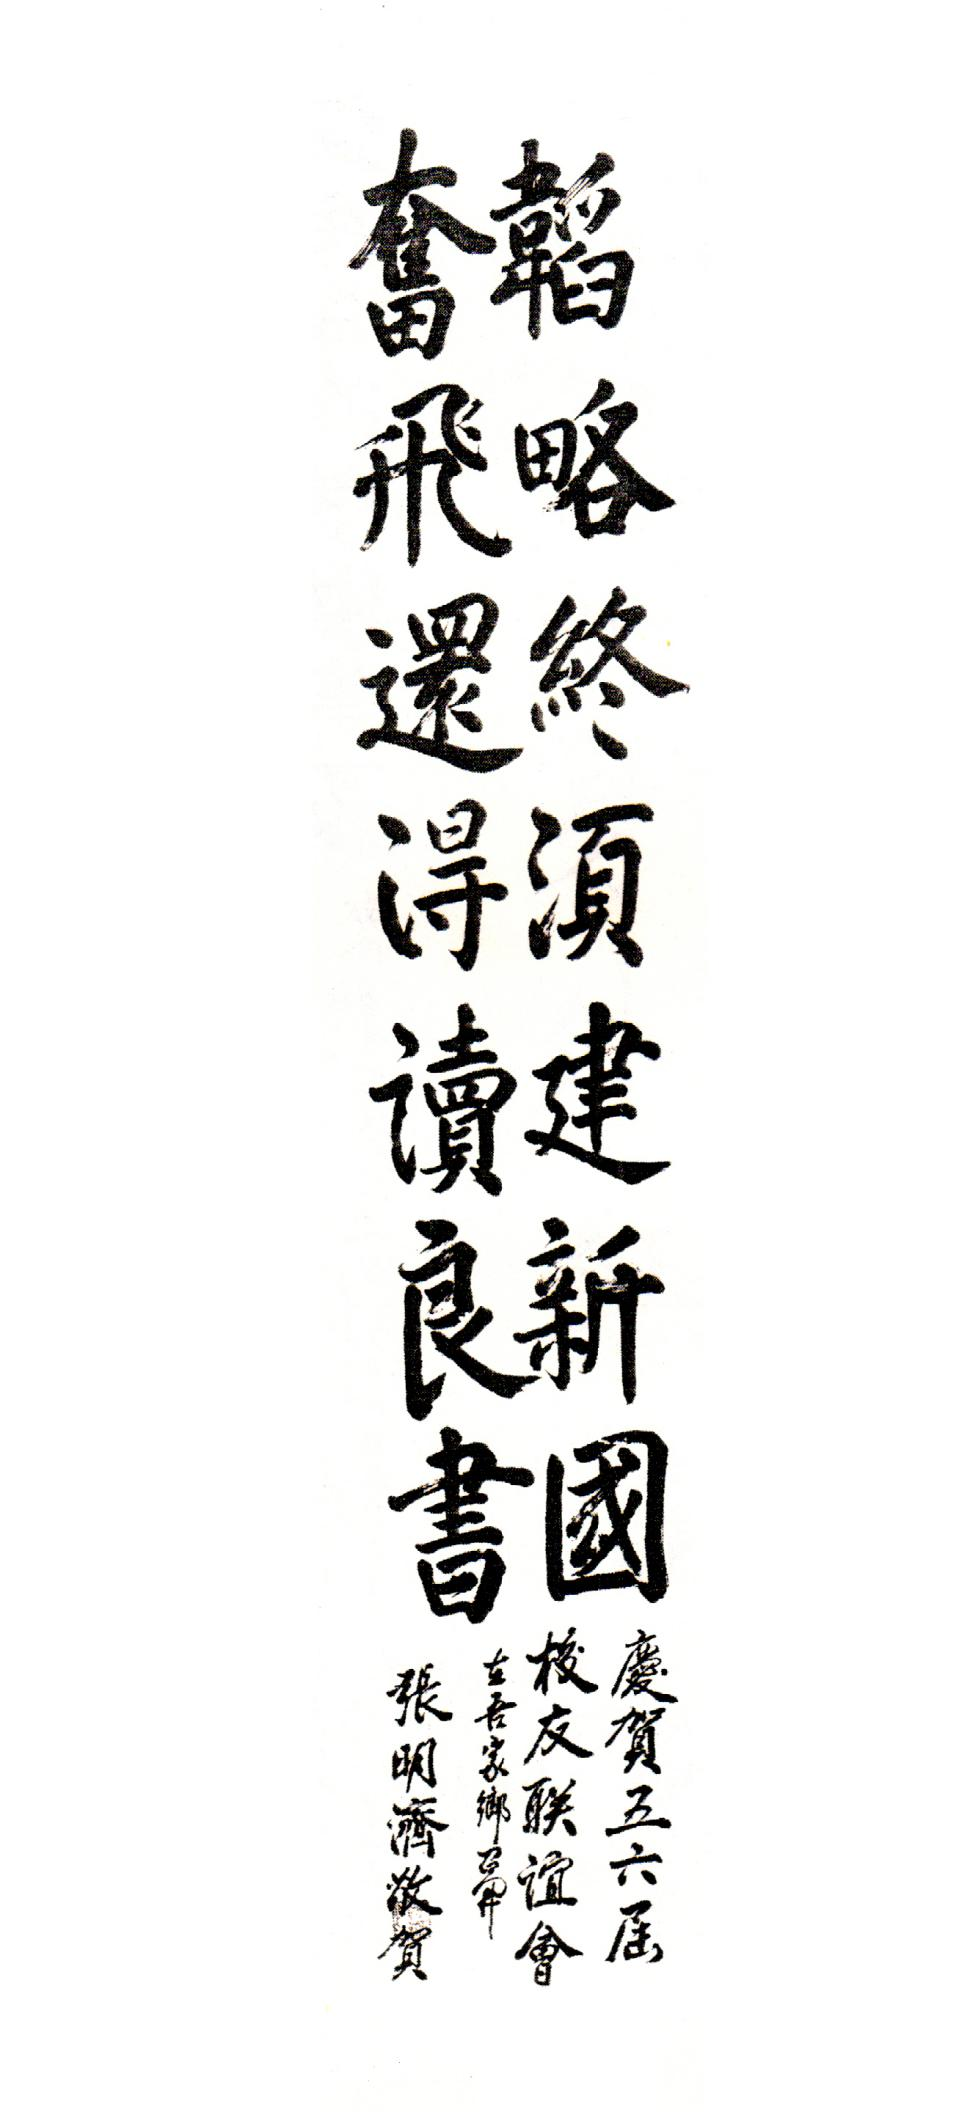 韜略終須建新國
奮飛還得讀良書
慶賀五六屆
校友联誼會
在吾家鄉召開
張明濟敬賀